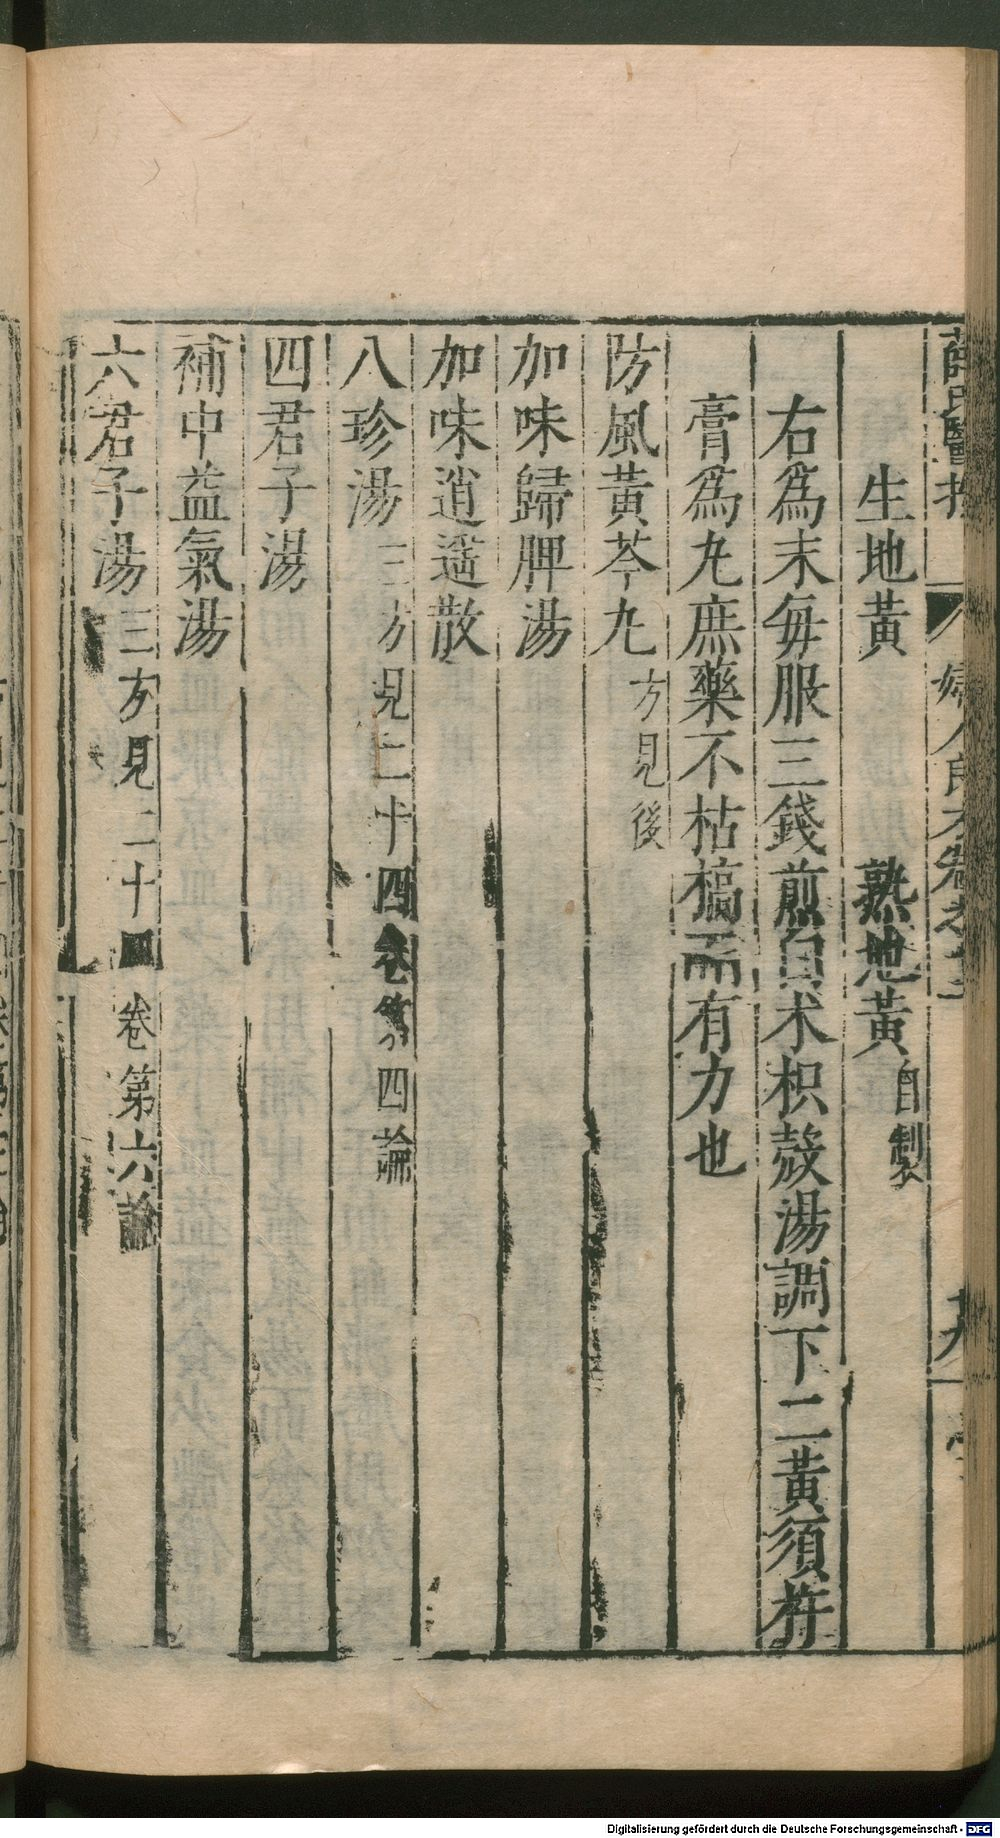 生地黃　熟地黃自製
右爲末每服三錢煎白朮枳殼湯調下二黃須杵
膏爲丸庶藥不枯槁而有力也
防風黃芩丸方見後
加味歸脾湯
加味逍遥散
八珍湯三方見二十四卷第四論
四君子湯
補中益氣湯
六君子湯三方見二十四卷第六論
Digitalisierung gefördert durch die Deutsche Forschungsgemeinschaft - DFG